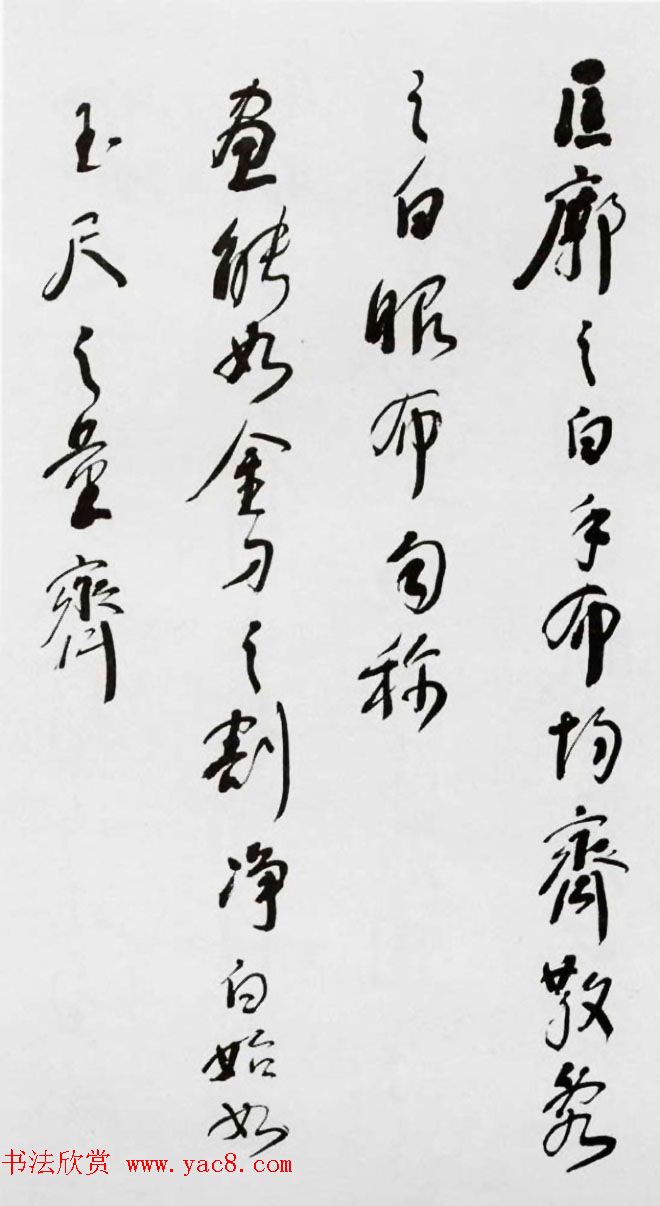 匡廓之白手布均齊散乱
之白眼布匀称
画能如金刀之割净白始如
玉尺之量齊
书法欣赏 www.yac8.com